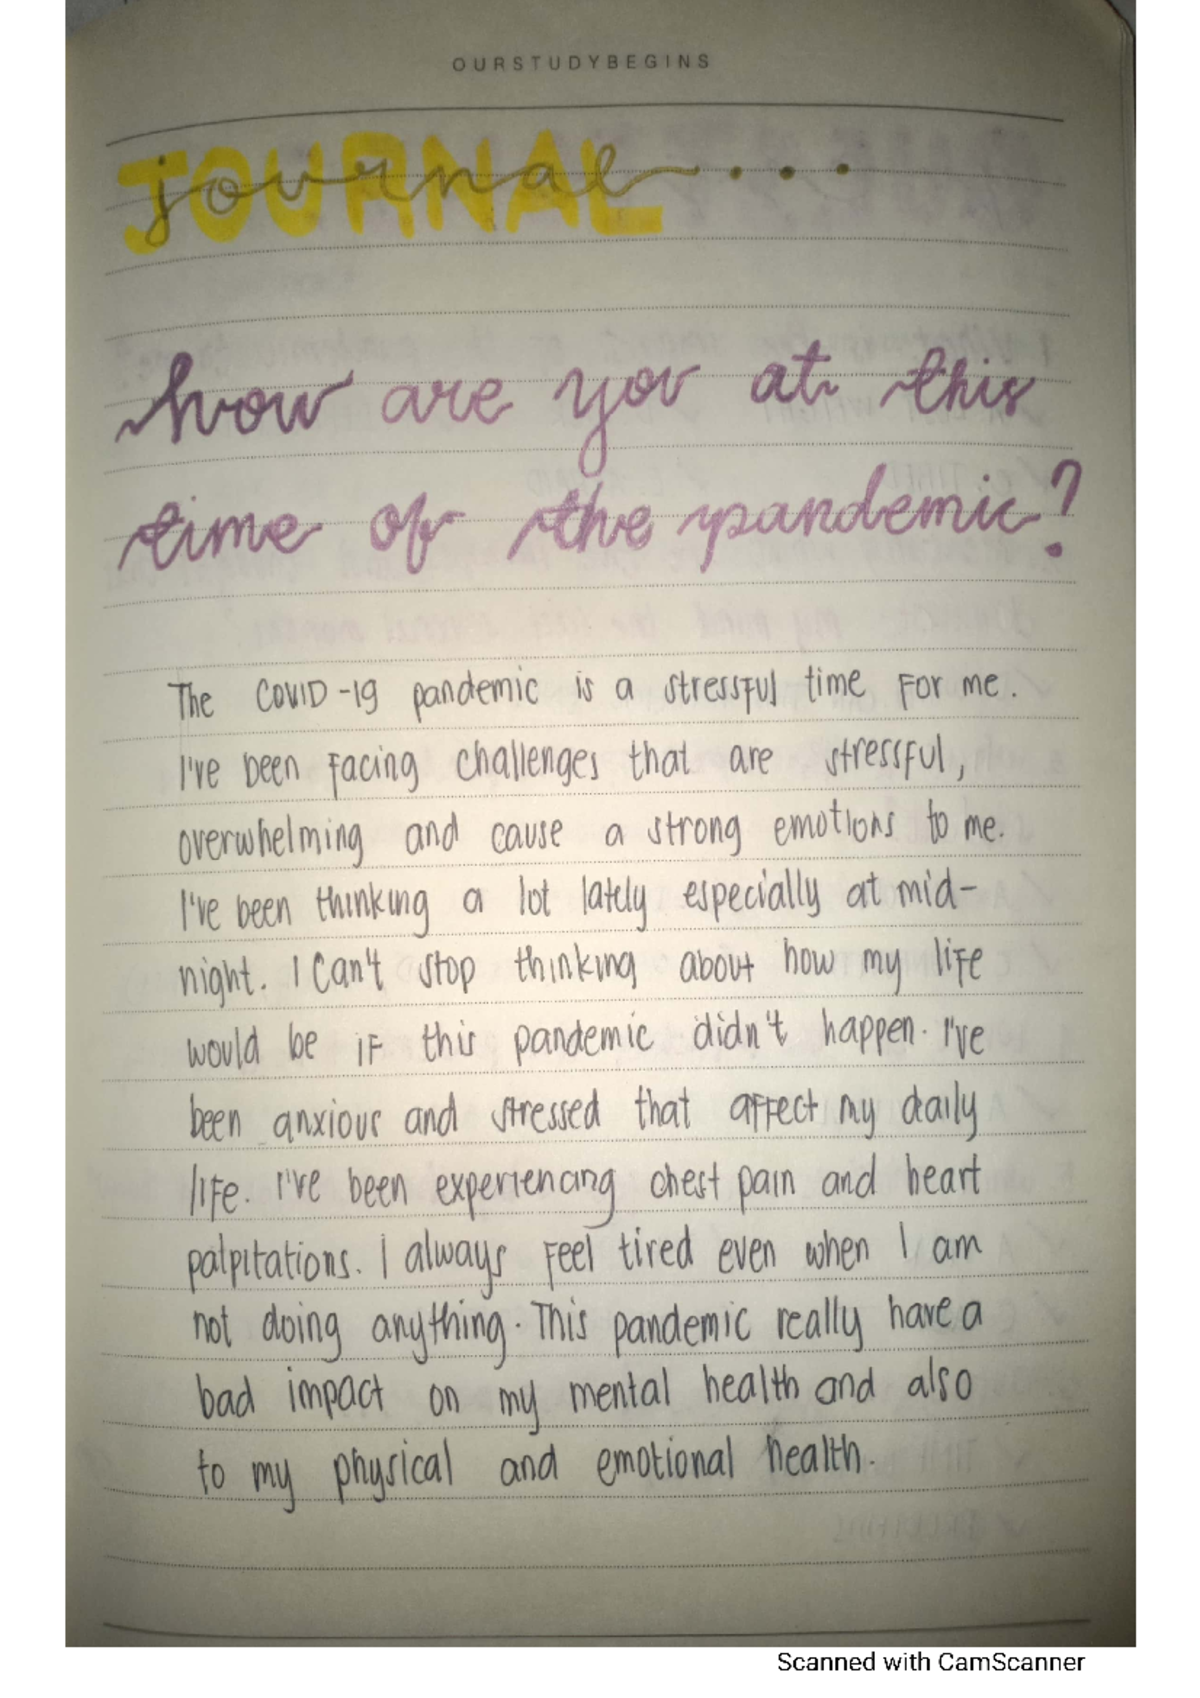 OURSTUDYBEGINS
JOURNAL
journal....
how are you at this
time of the pandemic?
The COVID-19 pandemic is a stressful time for me.
I've been facing challenges that are stressful,
overwhelming and cause a strong emotions to me.
I've been thinking a lot lately especially at mid-
night. I can't stop thinking about how my life
would be if this pandemic didn't happen. I've
been anxious and stressed that affect my daily
life. I've been experiencing chest pain and heart
palpitations. I always feel tired even when I am
not doing anything. This pandemic really have a
bad impact on my mental health and also
to my physical and emotional health.
Scanned with CamScanner